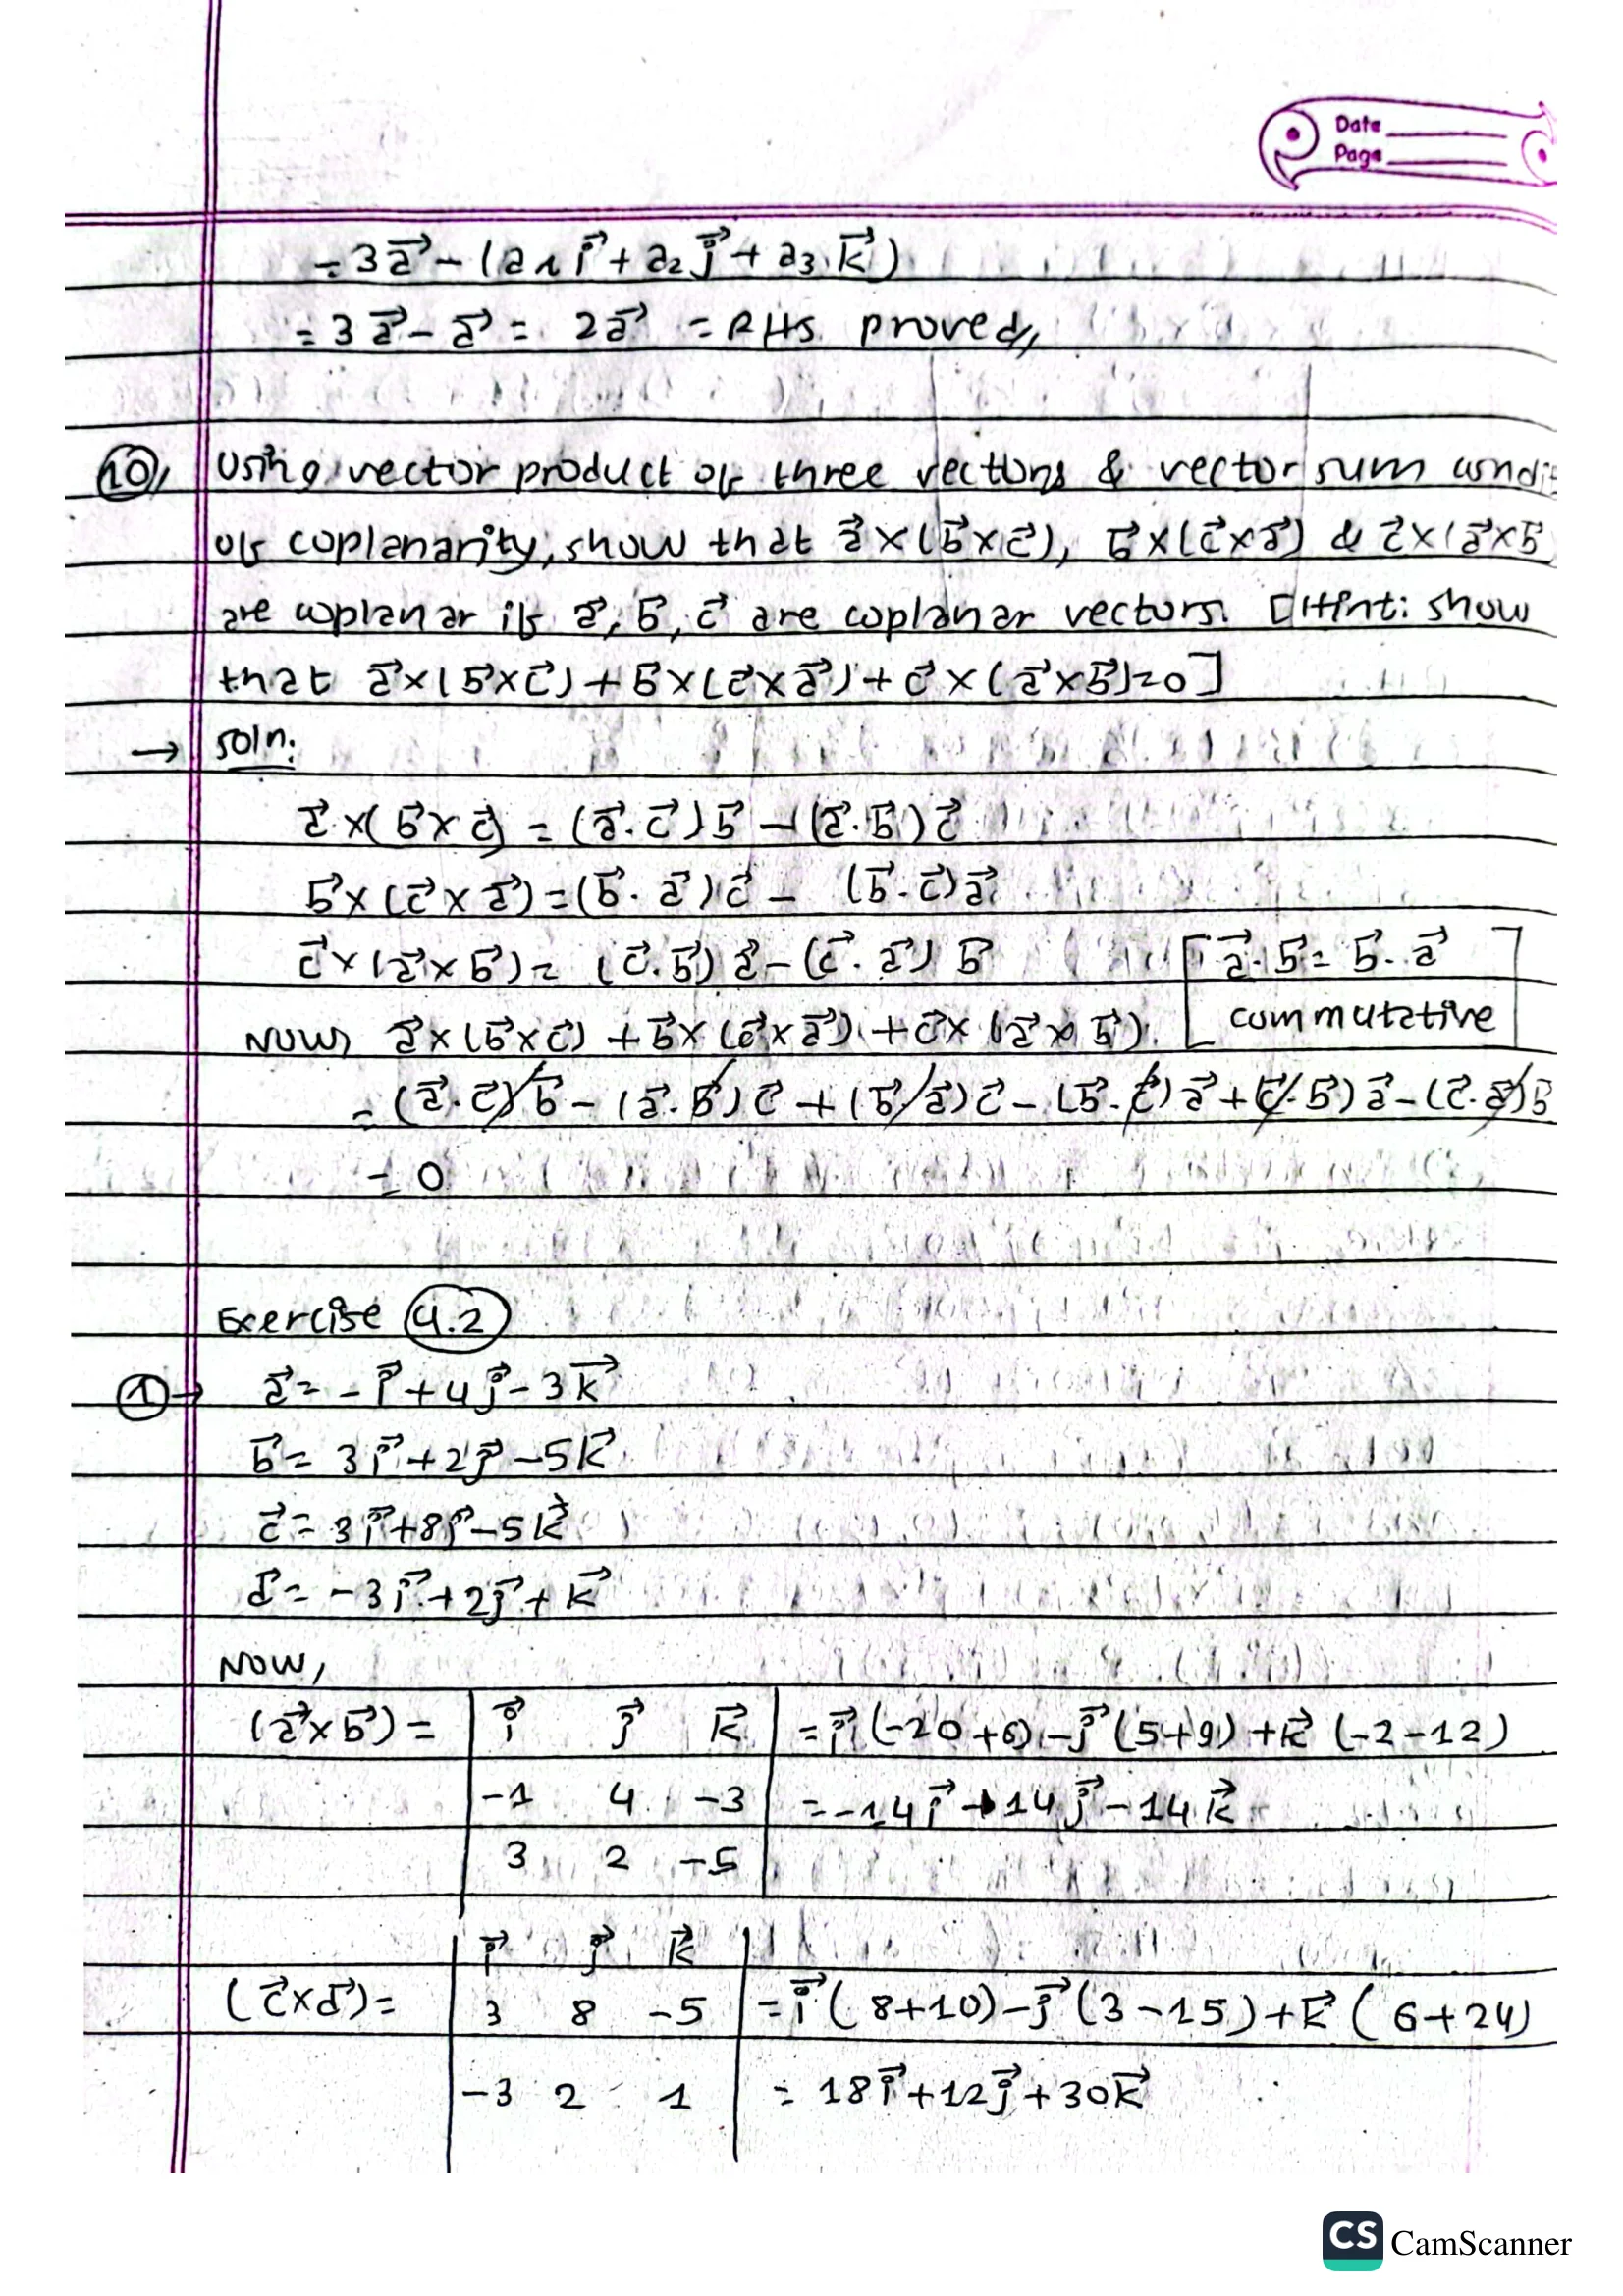 Date
Page
= 3a⃗ - (a1 i⃗ + a2 j⃗ + a3 k⃗)
= 3a⃗ - a⃗ = 2a⃗ = RHS proved,
10, Using vector product of three vectors & vector sum condi
of coplanarity, show that a⃗×(b⃗×c⃗), b⃗×(c⃗×a⃗) & c⃗×(a⃗×b⃗
are coplanar if a⃗, b⃗, c⃗ are coplanar vectors. [Hint: show
that a⃗×(b⃗×c⃗)+b⃗×(c⃗×a⃗)+c⃗×(a⃗×b⃗)=0]
→ soln:
a⃗×(b⃗×c⃗) = (a⃗.c⃗)b⃗ - (a⃗.b⃗)c⃗
b⃗×(c⃗×a⃗) = (b⃗.a⃗)c⃗ - (b⃗.c⃗)a⃗
c⃗×(a⃗×b⃗) = (c⃗.b⃗)a⃗ - (c⃗.a⃗)b⃗ [a⃗.b⃗ = b⃗.a⃗
commutative]
Now, a⃗×(b⃗×c⃗) + b⃗×(c⃗×a⃗) + c⃗×(a⃗×b⃗)
= (a⃗.c⃗)b⃗ - (a⃗.b⃗)c⃗ + (b⃗.a⃗)c⃗ - (b⃗.c⃗)a⃗ + (c⃗.b⃗)a⃗ - (c⃗.a⃗)b⃗
= 0
Exercise 4.2
1 → a⃗ = -i⃗ + 4j⃗ - 3k⃗
b⃗ = 3i⃗ + 2j⃗ - 5k⃗
c⃗ = 3i⃗ + 8j⃗ - 5k⃗
d⃗ = -3i⃗ + 2j⃗ + k⃗
Now,
(a⃗×b⃗) = | i⃗ j⃗ k⃗ | = i⃗(-20+6) - j⃗(5+9) + k⃗(-2-12)
-1 4 -3 | = -14i⃗ - 14j⃗ - 14k⃗
3 2 -5
i⃗ j⃗ k⃗
(c⃗×d⃗) = | 3 8 -5 | = i⃗(8+10) - j⃗(3-15) + k⃗(6+24)
-3 2 1 | = 18i⃗ + 12j⃗ + 30k⃗
CS CamScanner